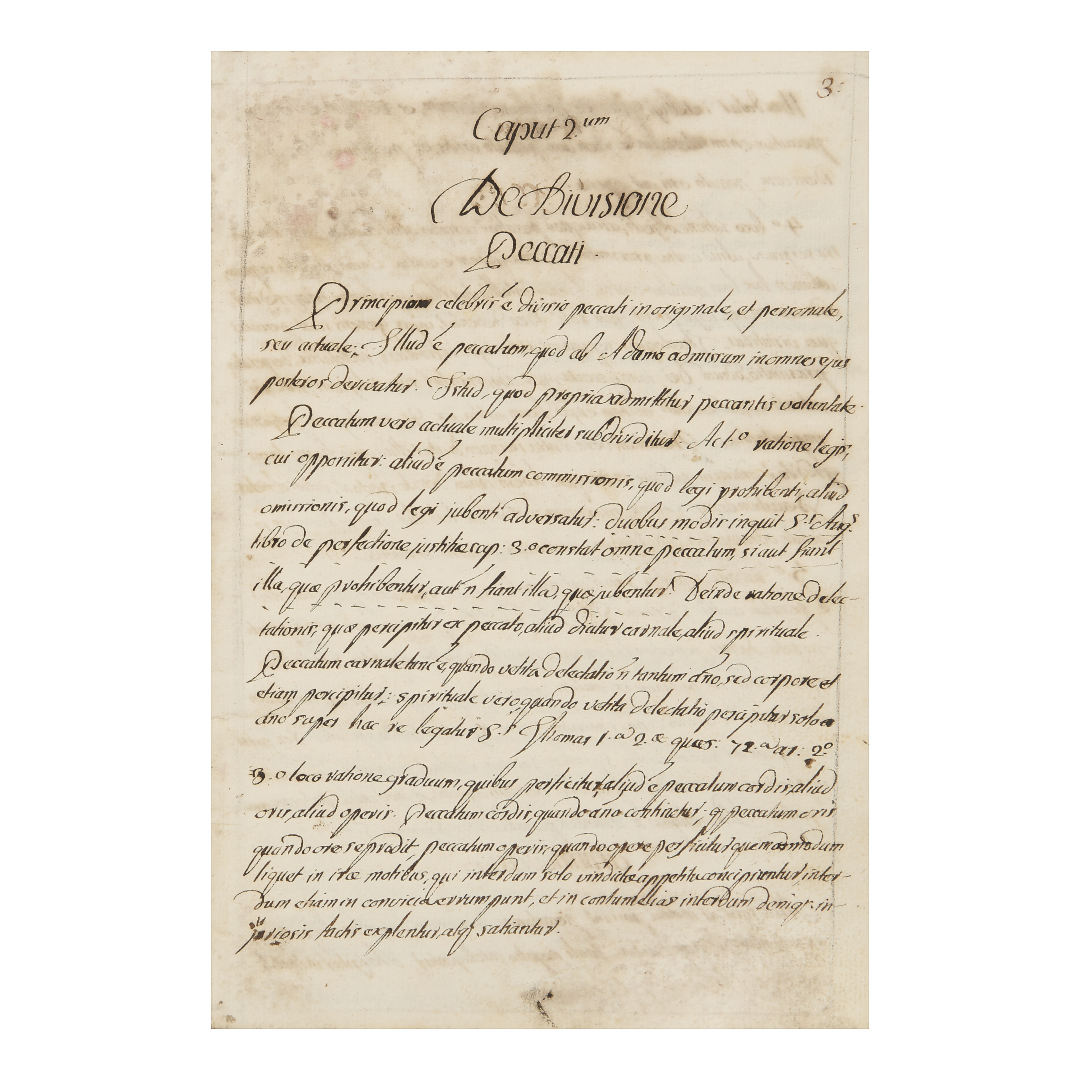 3.
Caput 2.um
De Divisione
Peccati.
Principiom celebris é divisio peccati in originale, et personale,
seu actuale; Illud é peccatum, quod ab Adamo admissum in omnes ejus
posteros derivatur. Istud, quod propria admittitur peccantis voluntate.
Peccatum vero actuale multipliciter subdividitur. Act.o ratione legis,
cui opponitur: aliud é peccatum commissionis, quod legi prohibenti, aliud
omissionis, quod legi jubenti adversatur: duobus modis inquit S.s Aug.s
libro de perfectione justitiæ cap: 3.o constat omne peccatum, si aut fiant
illa, quæ prohibentur, aut ñ fiant illa, quæ jubentur. Deinde ratione delec-
tationis, quæ percipitur ex peccato, aliud dicitur carnale, aliud spirituale.
Peccatum carnale tunc é, quando vetita delectatio ñ tantum año, sed corpore et
etiam percipitur; spirituale vero quando vetita delectatio percipitur solo a
año super hac re legatur S.s Thomas 1.a 2.æ quæs: 72.a ar: 2.o
3.o loco ratione graduum, quibus perficitur, aliud é peccatum cordis, aliud
oris, aliud operis. Peccatum cordis, quando año continetur; peccatum oris
quando ore se prodit, peccatum operis, quando opere perficitur, quemadmodum
liquet in iræ motibus, qui interdum solo vindictæ appetitu concipiuntur, inter-
dum etiam in convicia errumpunt, et in contumelias interdum deniq; in-
juriosis factis explentur, atq; satiantur.